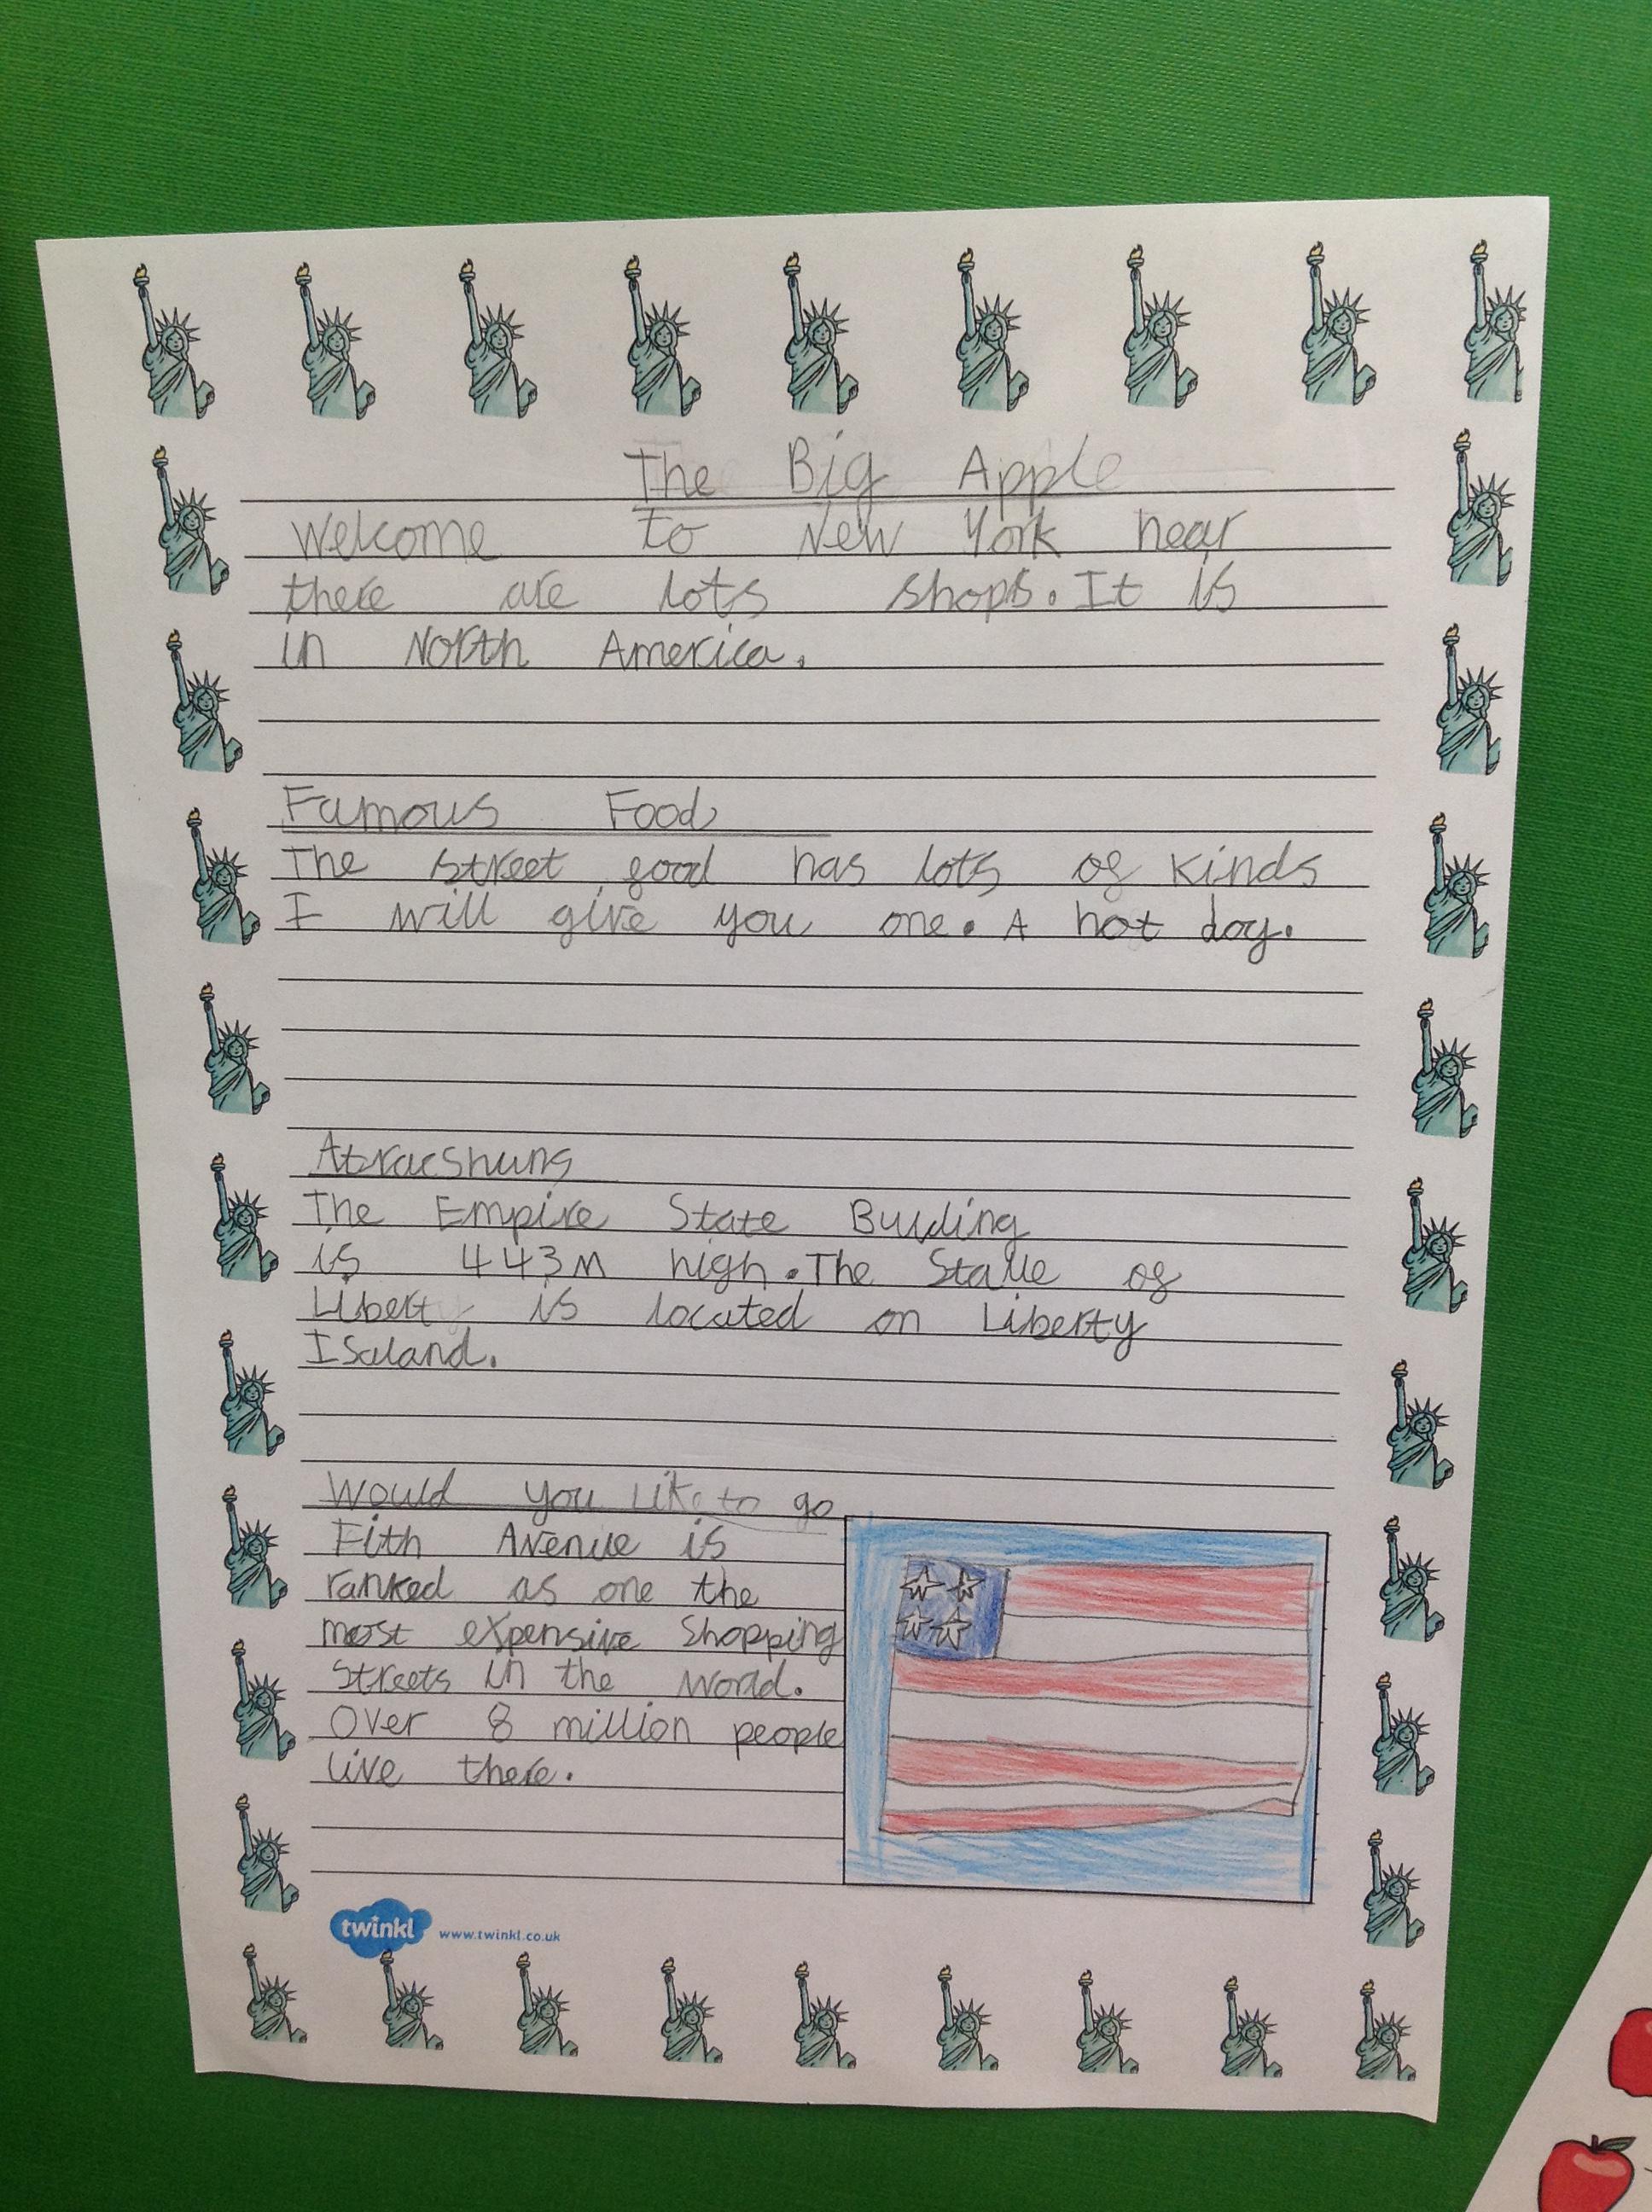 The Big Apple
Welcome to New York hear
there are lots shops. It is
in North America.
Famous Food
The street food has lots of kinds
I will give you one. A hot dog.
Atracshuns
The Empire State Buulding
is 443M high. The Statue of
Liberty is located on Liberty
Isaland.
Would you like to go
Fith Avenue is
ranked as one the
most expensive shopping
streets in the world.
Over 8 million people
live there.
twinkl www.twinkl.co.uk